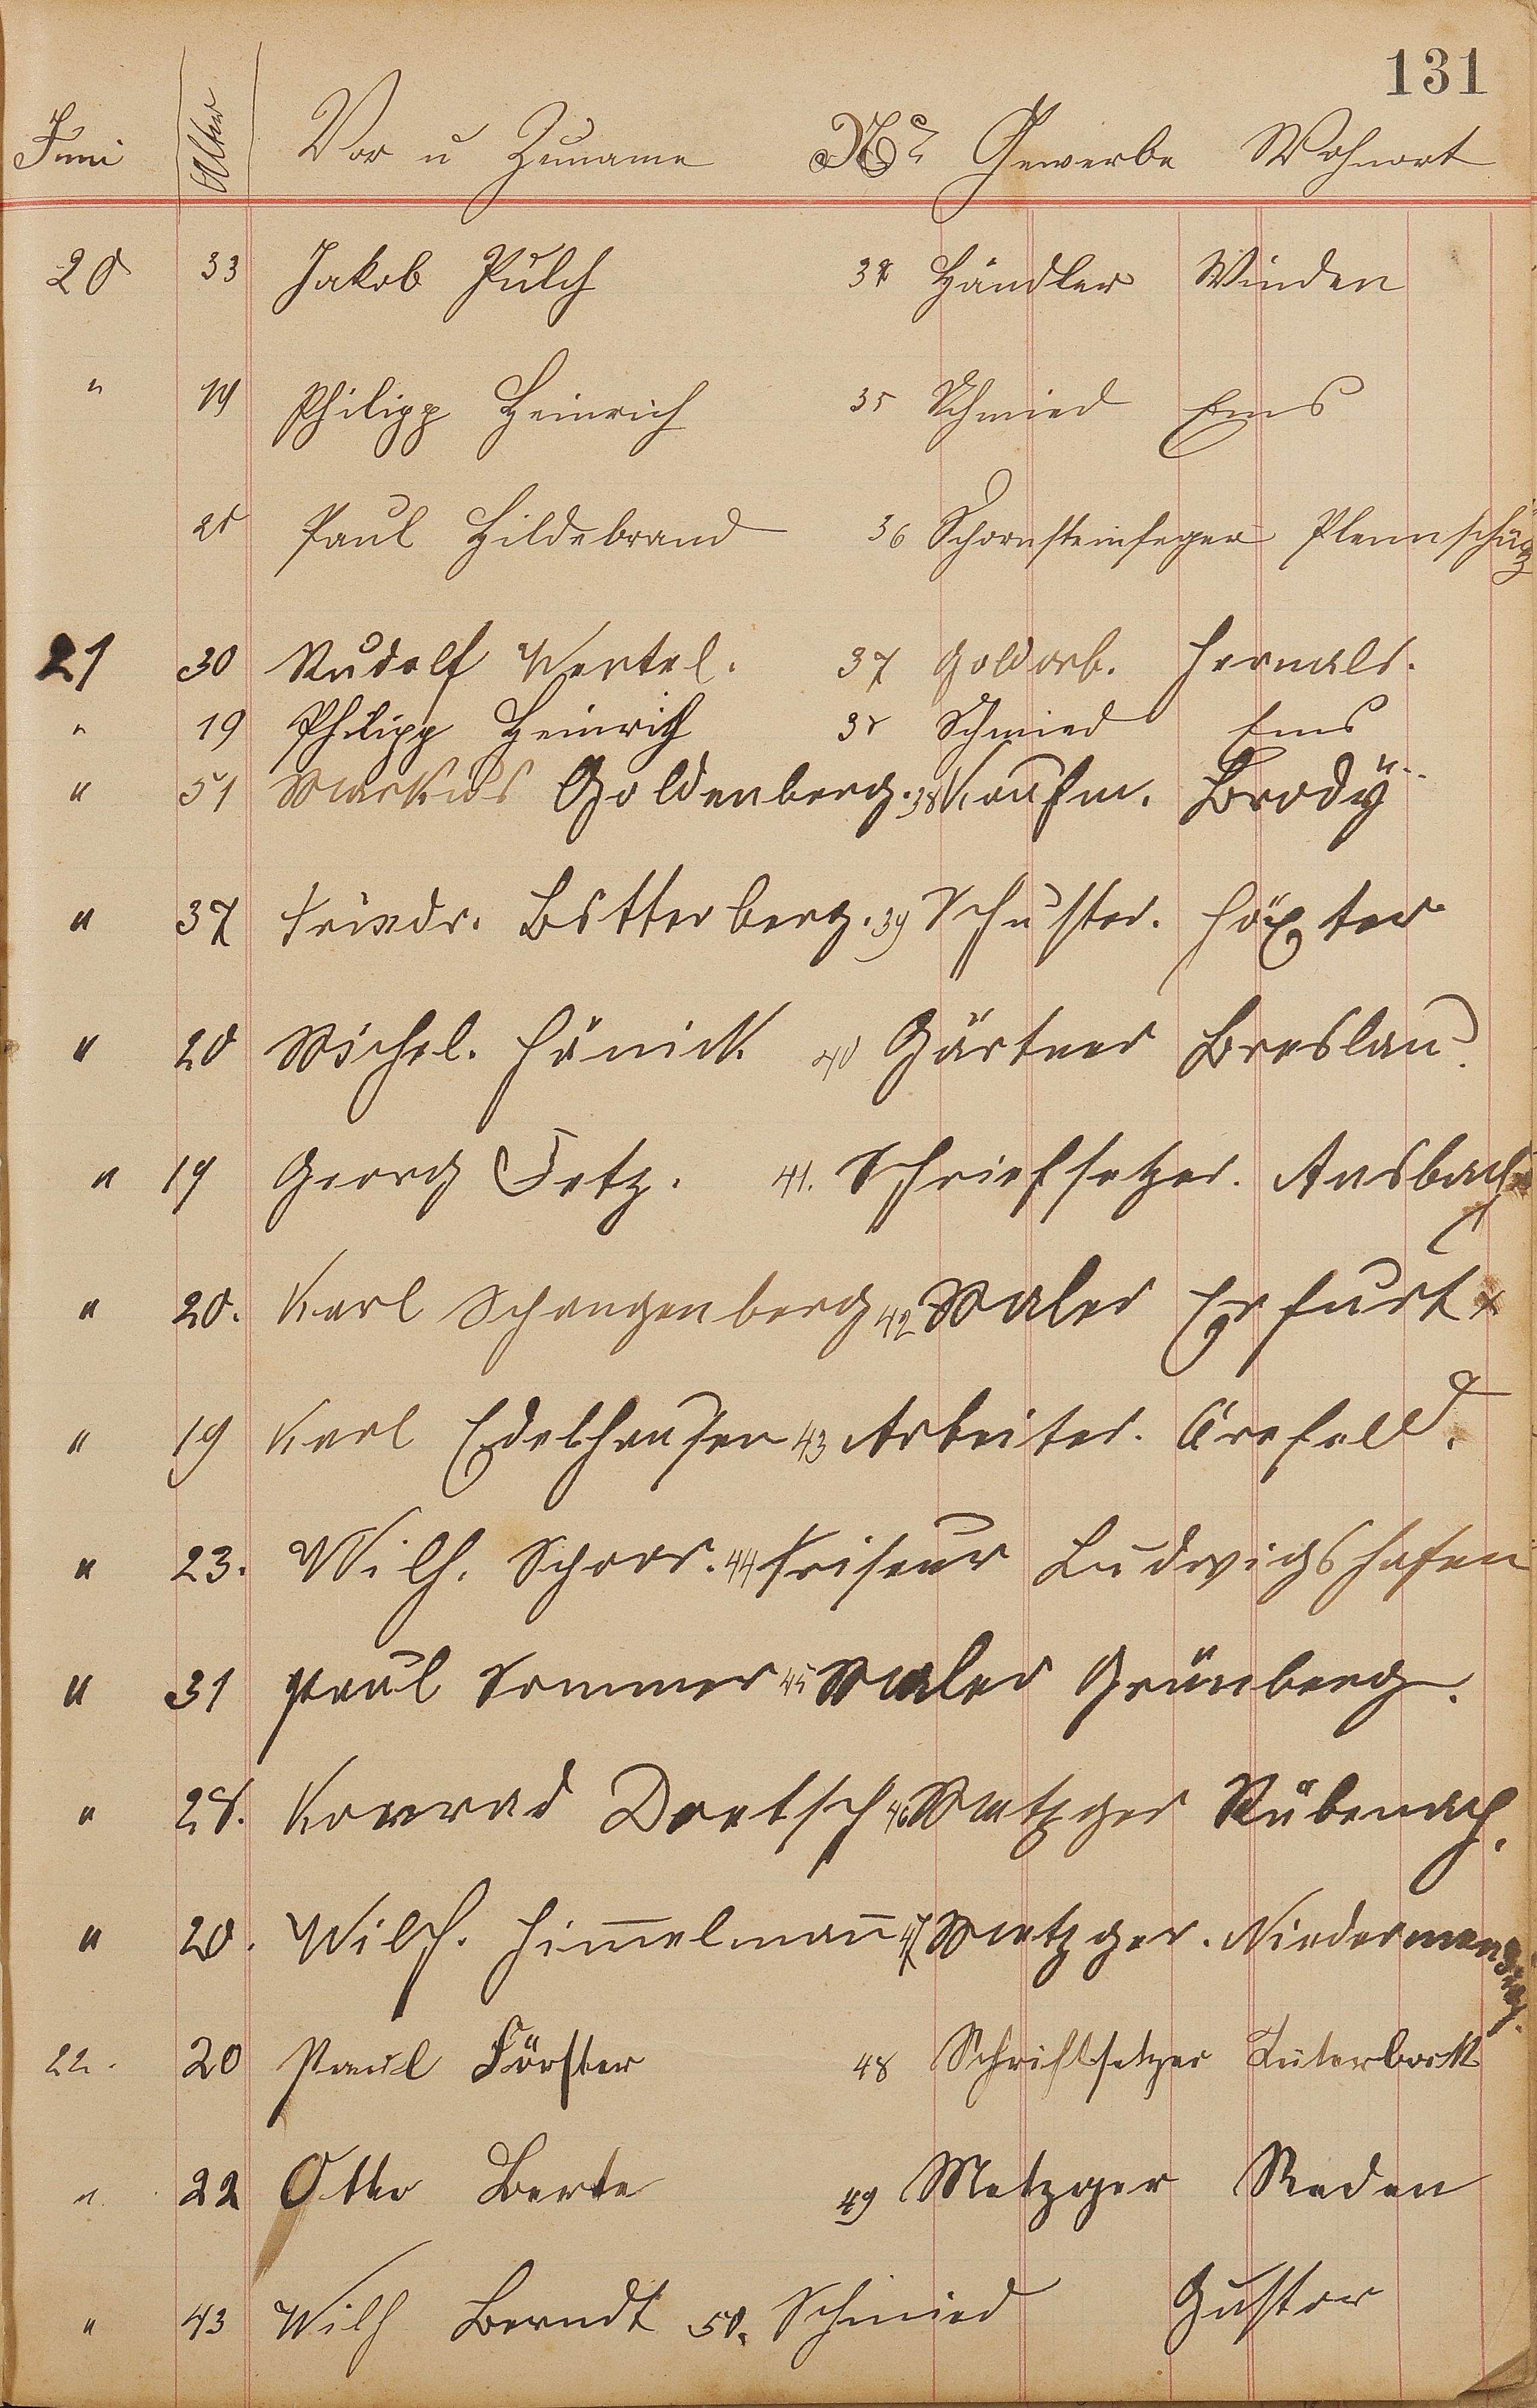 131
Juni Alter Vor u Zuname No Gewerbe Wohnort
20 33 Jakob Pulch 34 Händler Winden
" 19 Philipp Heinrich 35 Schmied Ems
Paul Hildebrand 36 Schornsteinfeger
21 30 Rudolf Wertel. 37 Goldarb. Hernals.
" 19 Philipp Heinrich 38 Schmied Ems
" 51 Markus Goldenberg. 38 Kaufm. Brody
" 37 Friedr. Bitterberg. 39 Schuster. Höxter
" 20 Michel. Hönick 40 Gärtner Breslau.
" 19 Georg Fetz. 41. Schriefsetzer. Ansbach
" 20. Karl Schangenberg 42 Maler Erfurt x
" 19 Karl Edelhausen 43 Arbeiter. Crefeld.
" 23. Wilh. Schorr. 44 Friseur Ludwigshafen
" 31 Paul Sommer 45 Maler Grünberg.
" 28. Konrad Doetsch 46 Metzger Rübenach.
" 20. Wilh. Him̅elman̅ 47 Metzger. Niedermendig.
22. 20 Paul Förster 48 Schriftsetzer Jüterbock
" 22 Otto Berte 49 Metzger Reden
" 43 Wilh Berndt 50. Schmied Güstow